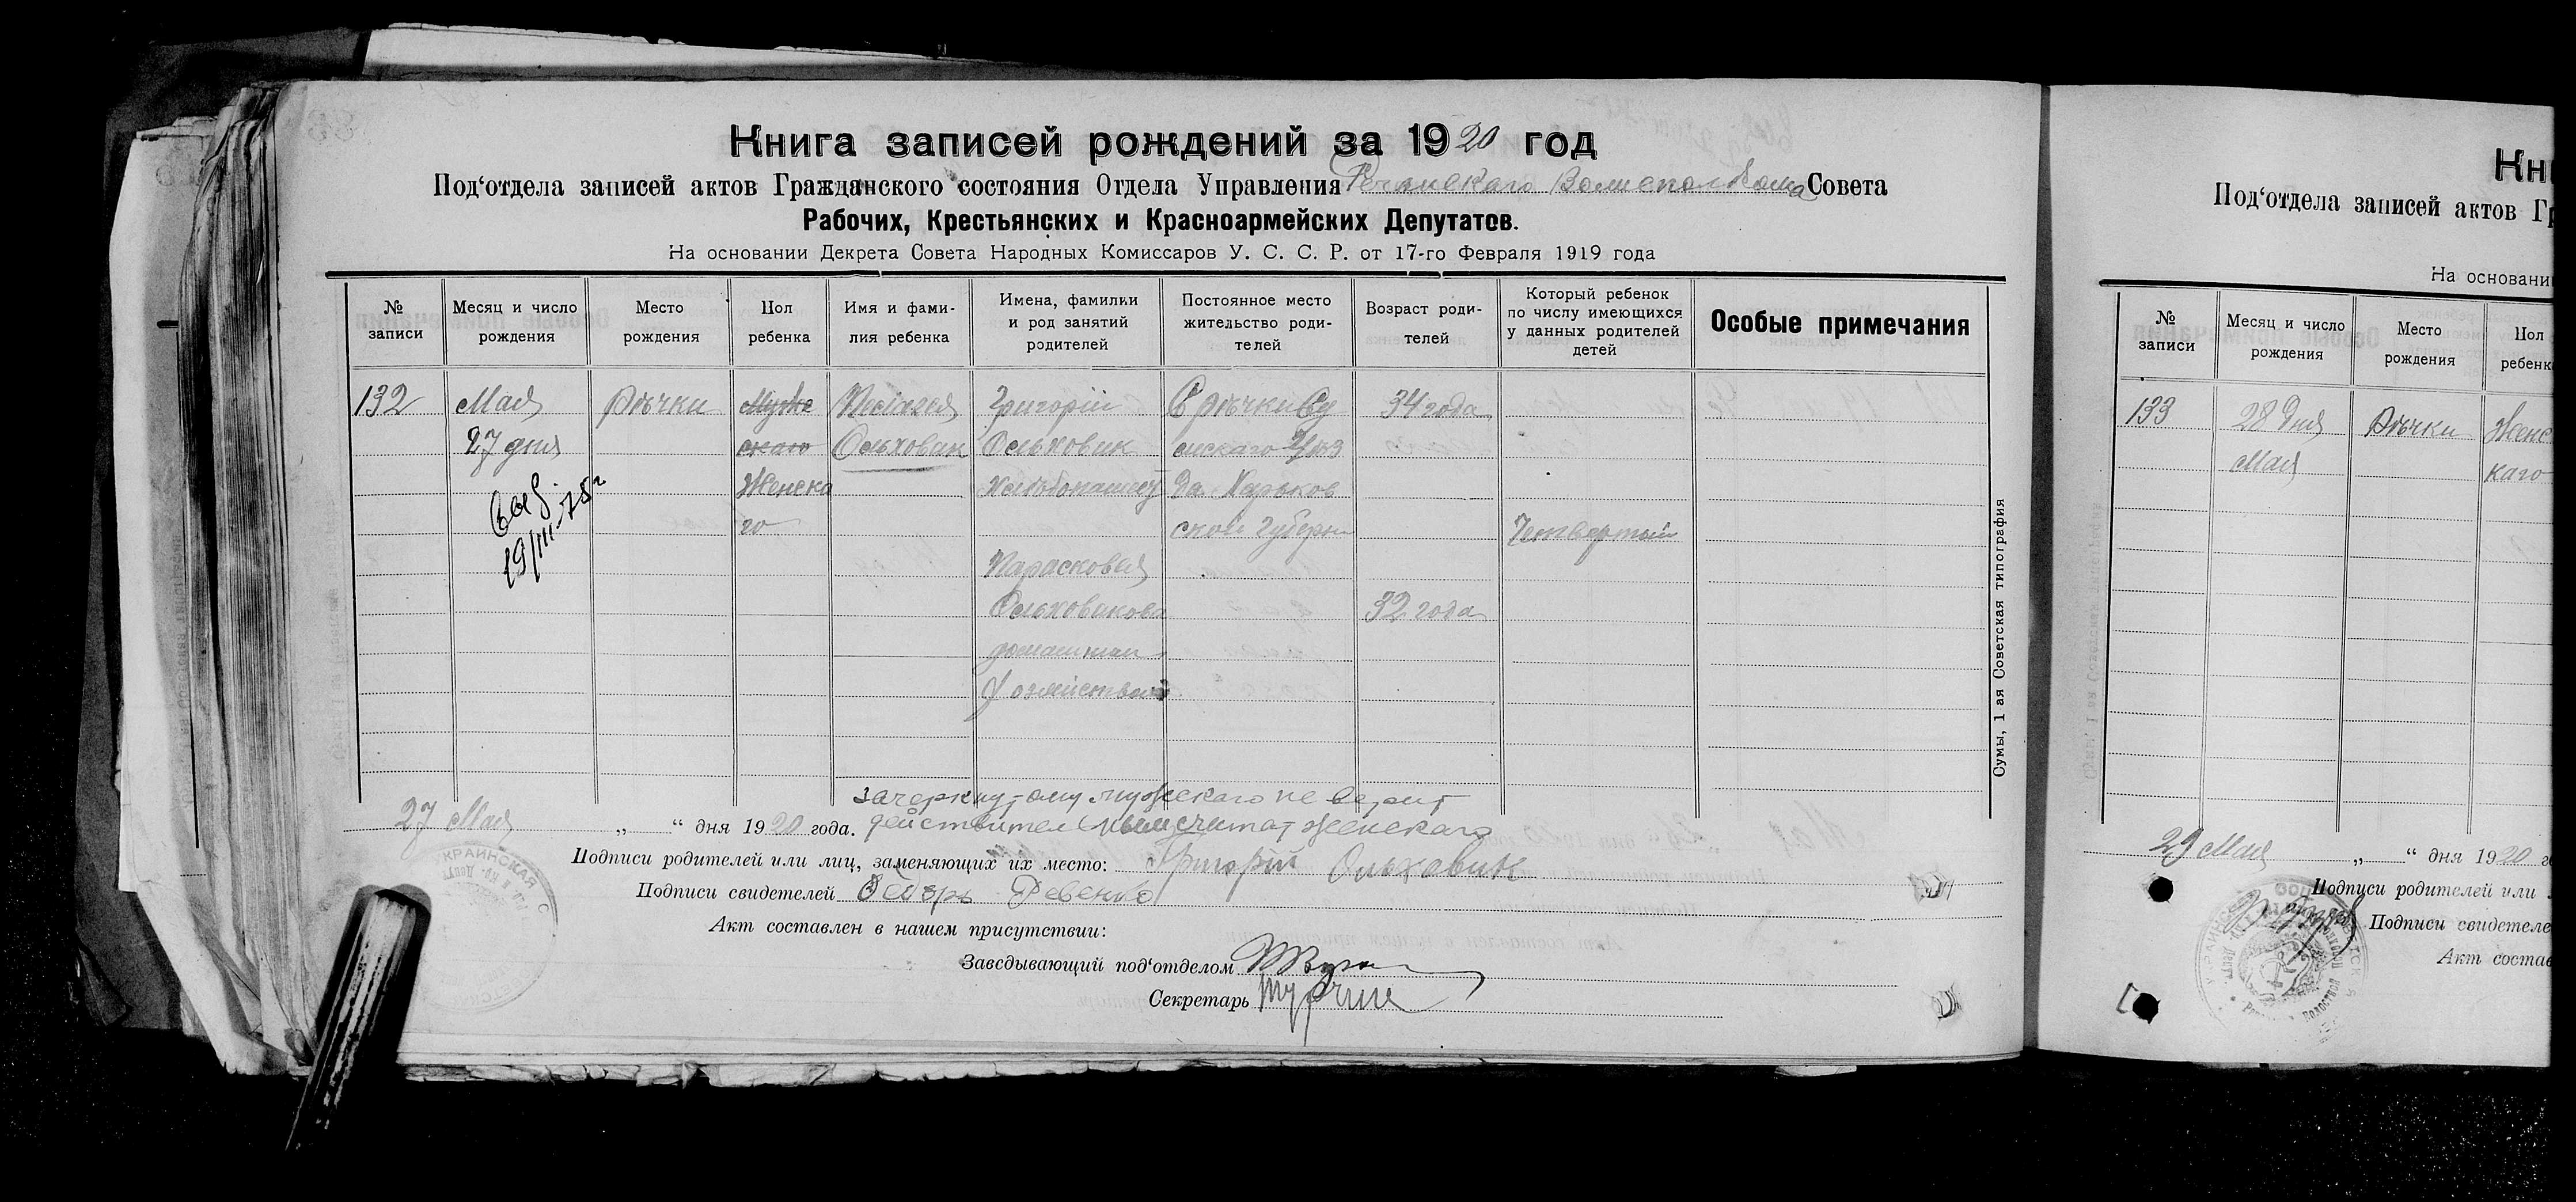 Книга записей рождений за 1920 год
Под‘отдела записей актов Гражданского состояния Отдела Управления Речанскаго Волисполкома Совета
Рабочих, Крестьянских и Красноармейских Депутатов.
На основании Декрета Совета Народных Комиссаров У. С. С. Р. от 17-го Февраля 1919 года
№ записи
Месяц и число рождения
Место рождения
Пол ребенка
Имя и фами-
лия ребенка
Имена, фамилии
и род занятий
родителей
Постоянное место
жительство роди-
телей
Возраст роди-
телей
Который ребенок
по числу имеющихся
у данных родителей
детей
Особые примечания
132
Мая
27 дня
19/III-75г
Рѣчки
Муже
скаго
Женска
го
Ольховик
Григорій
Ольховик
Парасковья
Ольховикова
домашнан
С Рѣчки Су
мскаго Уѣз
да Харьков
ской Губерн
34 года
32 года
Четвертый
зачеркнутому мужскаго не верит
действител считат женскаго
27 Мая „ “ дня 1920 года.
Подписи родителей или лиц, заменяющих их место: Григорій Ольховик
Подписи свидетелей Ревенко
Акт составлен в нашем присутствии:
Заведывающий под‘отделом
Секретарь
Сумы, 1 ая Советская типография
УКРАИНСКАЯ С
Кн
Под‘отдела записей актов Гр
На основани
№ записи
Месяц и число рождения
Место рождения
Пол ребенк
133
28 дня
Мая
Рѣчки
Женс
каго
29 Мая „ “ дня 1920 г
Подписи родителей или
Подписи свидетеле
Акт состав